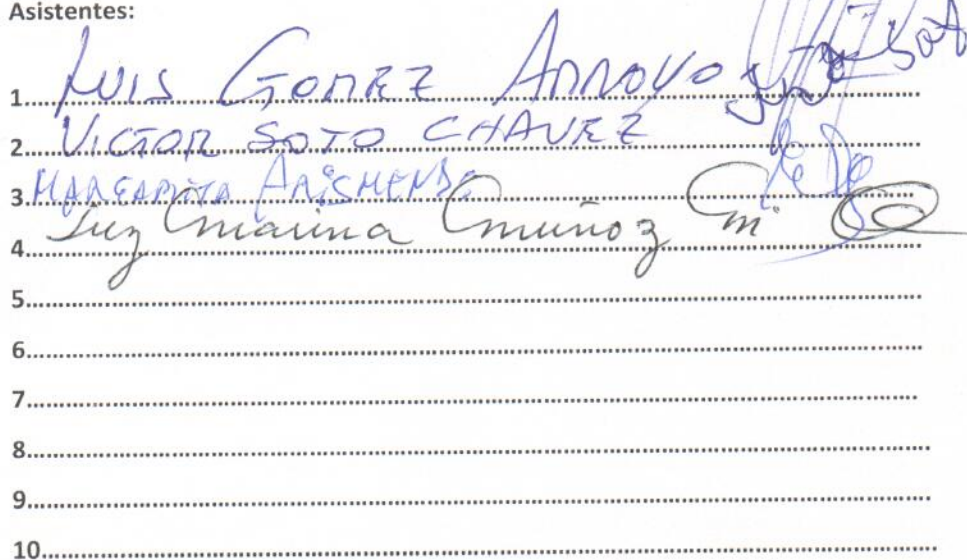 Asistentes:
1. LUIS GOMEZ ARROYO
2. VICTOR SOTO CHAVEZ
3. MARGARITA ARISMENDI
4. Luz Marina Muñoz M.
5.
6.
7.
8.
9.
10.